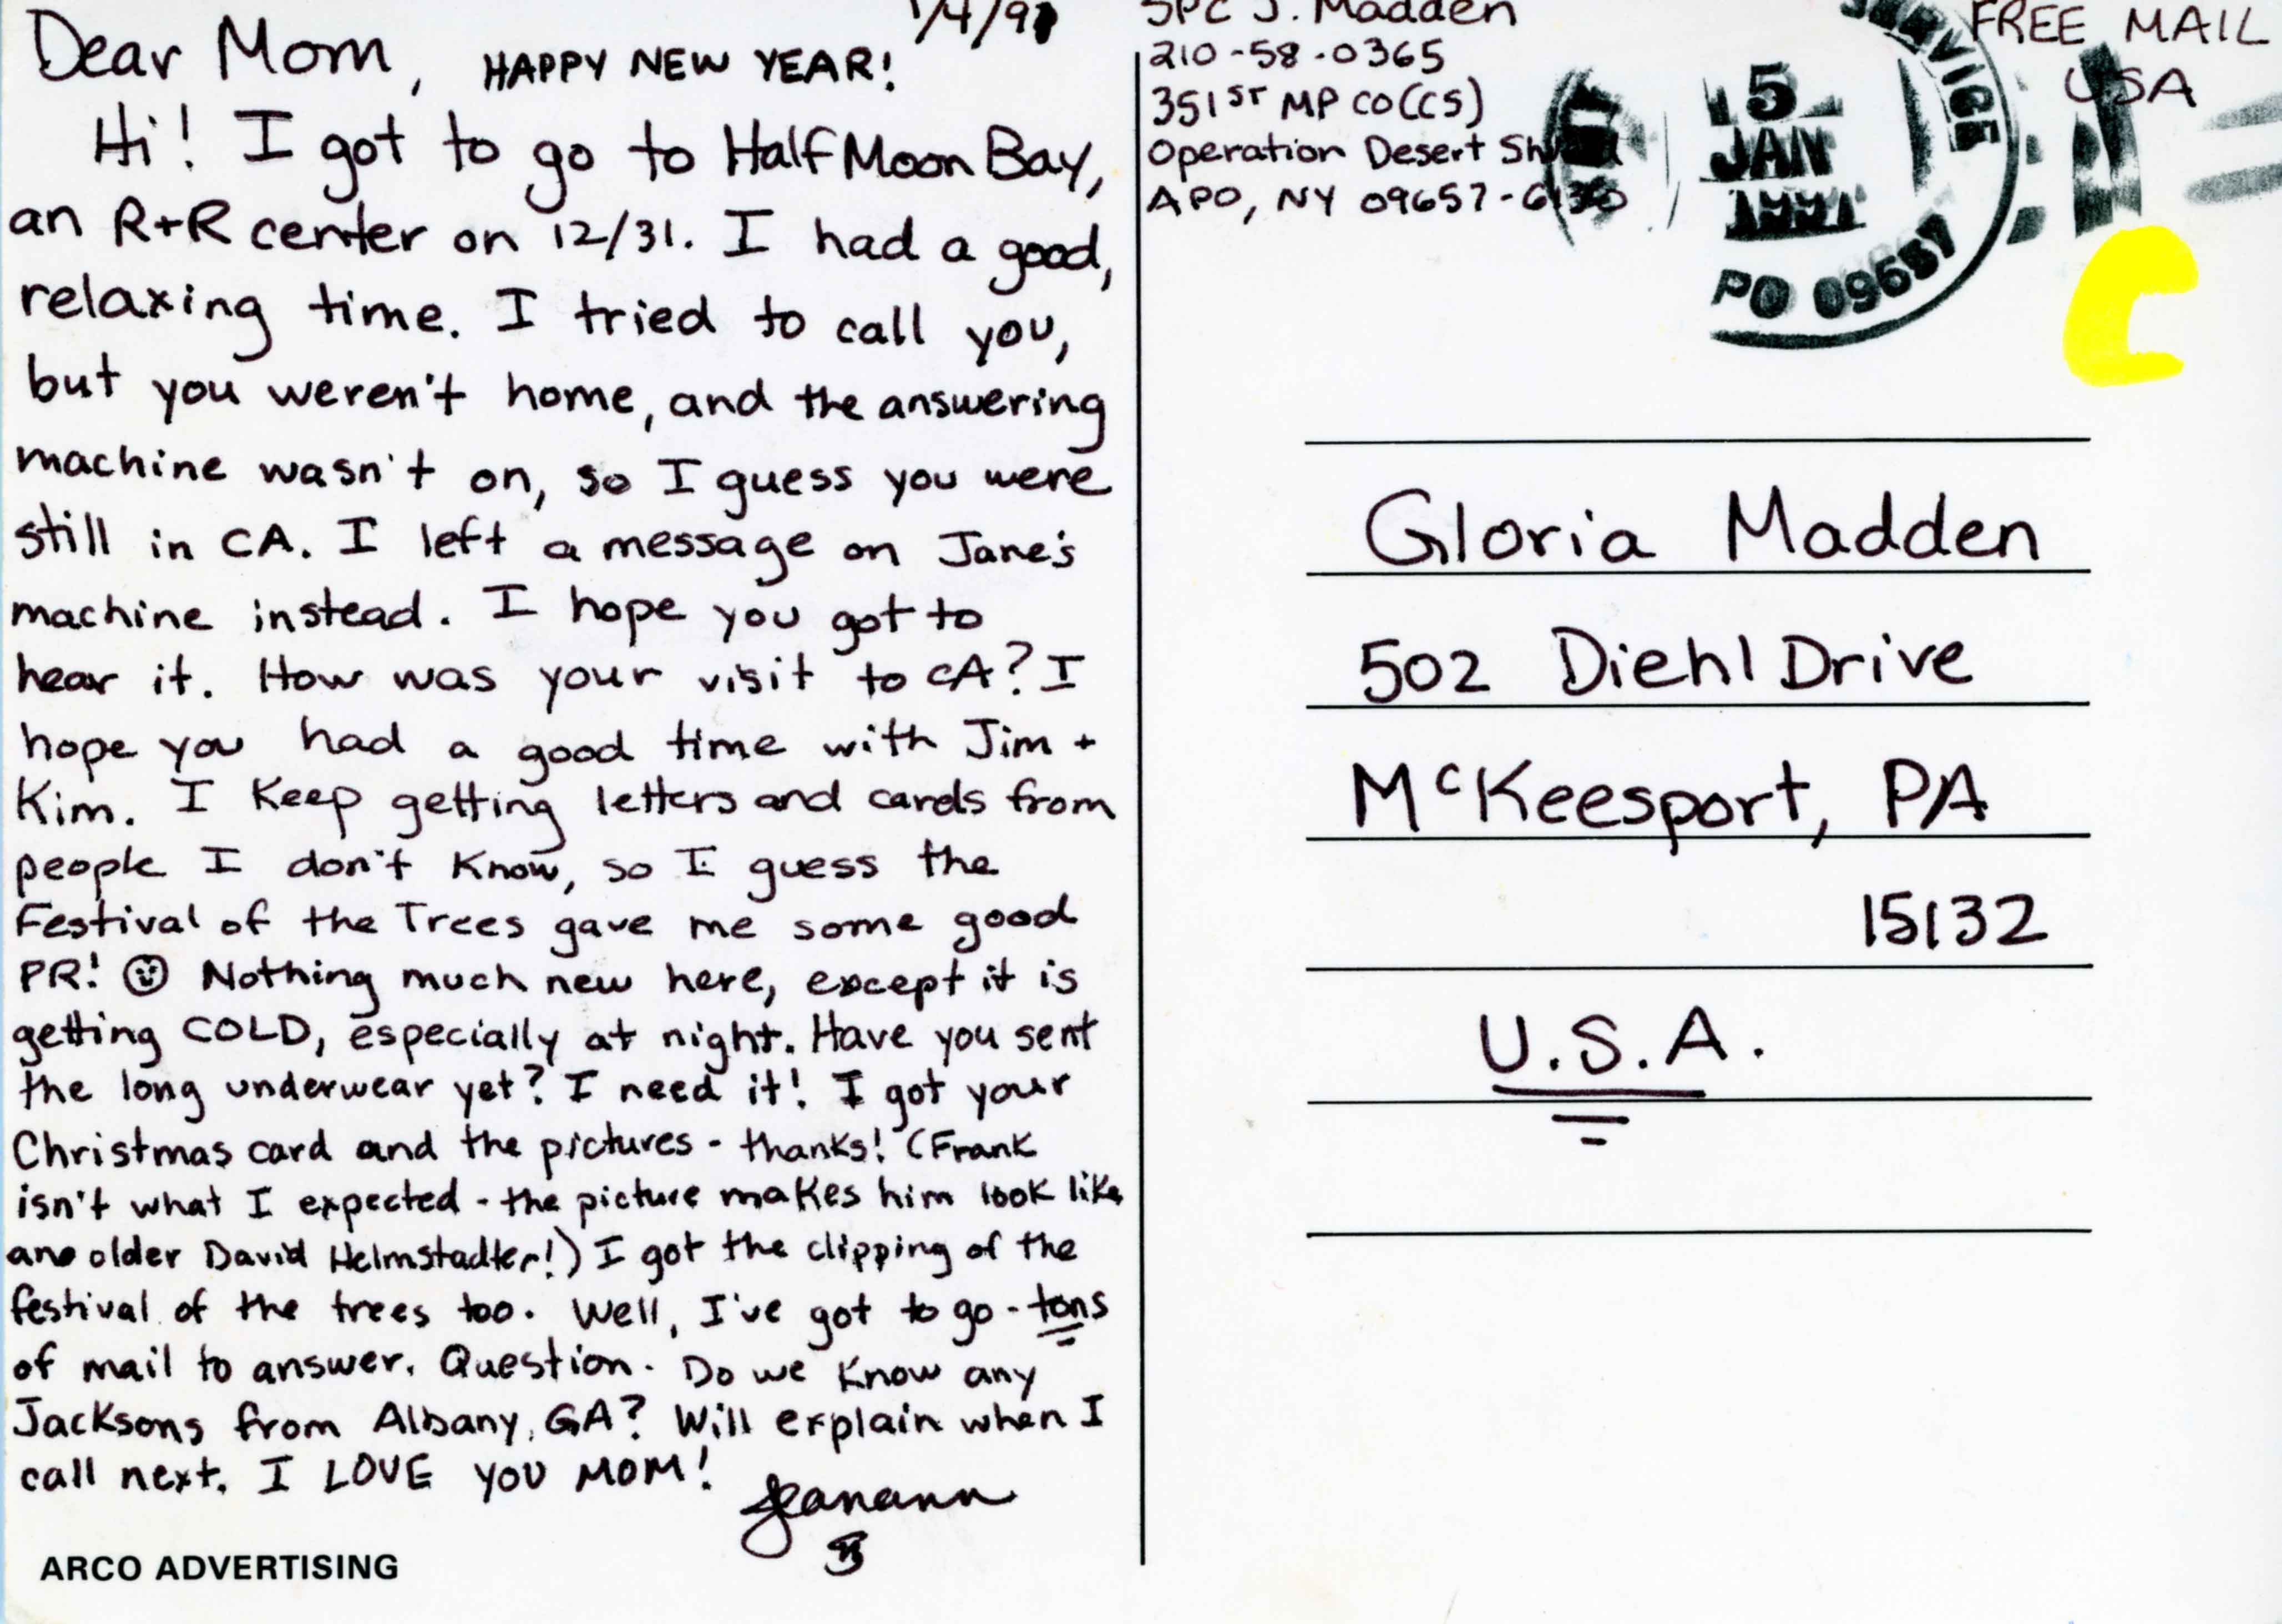 1/4/91
Dear Mom, HAPPY NEW YEAR!
Hi! I got to go to Half Moon Bay,
an R+R center on 12/31. I had a good,
relaxing time. I tried to call you,
but you weren't home, and the answering
machine wasn't on, so I guess you were
still in CA. I left a message on Jane's
machine instead. I hope you got to
hear it. How was your visit to CA? I
hope you had a good time with Jim +
Kim. I Keep getting letters and cards from
people I don't Know, so I guess the
Festival of the Trees gave me some good
PR! ☺ Nothing much new here, except it is
getting COLD, especially at night. Have you sent
the long underwear yet? I need it! I got your
Christmas card and the pictures - thanks! (Frank
isn't what I expected - the picture makes him look like
an older David Helmstadter!) I got the clipping of the
festival of the trees too. Well, I've got to go - tons
of mail to answer. Question - Do we Know any
Jacksons from Albany, GA? Will explain when I
call next. I LOVE YOU MOM!
Jeanann
ARCO ADVERTISING
SPC J. Madden
210-58-0365
351ST MP CO (CS)
Operation Desert Shield
APO, NY 09657-6130
FREE MAIL
USA
5
JAN
1991
PO 09657
Gloria Madden
502 Diehl Drive
McKeesport, PA
15132
U.S.A.